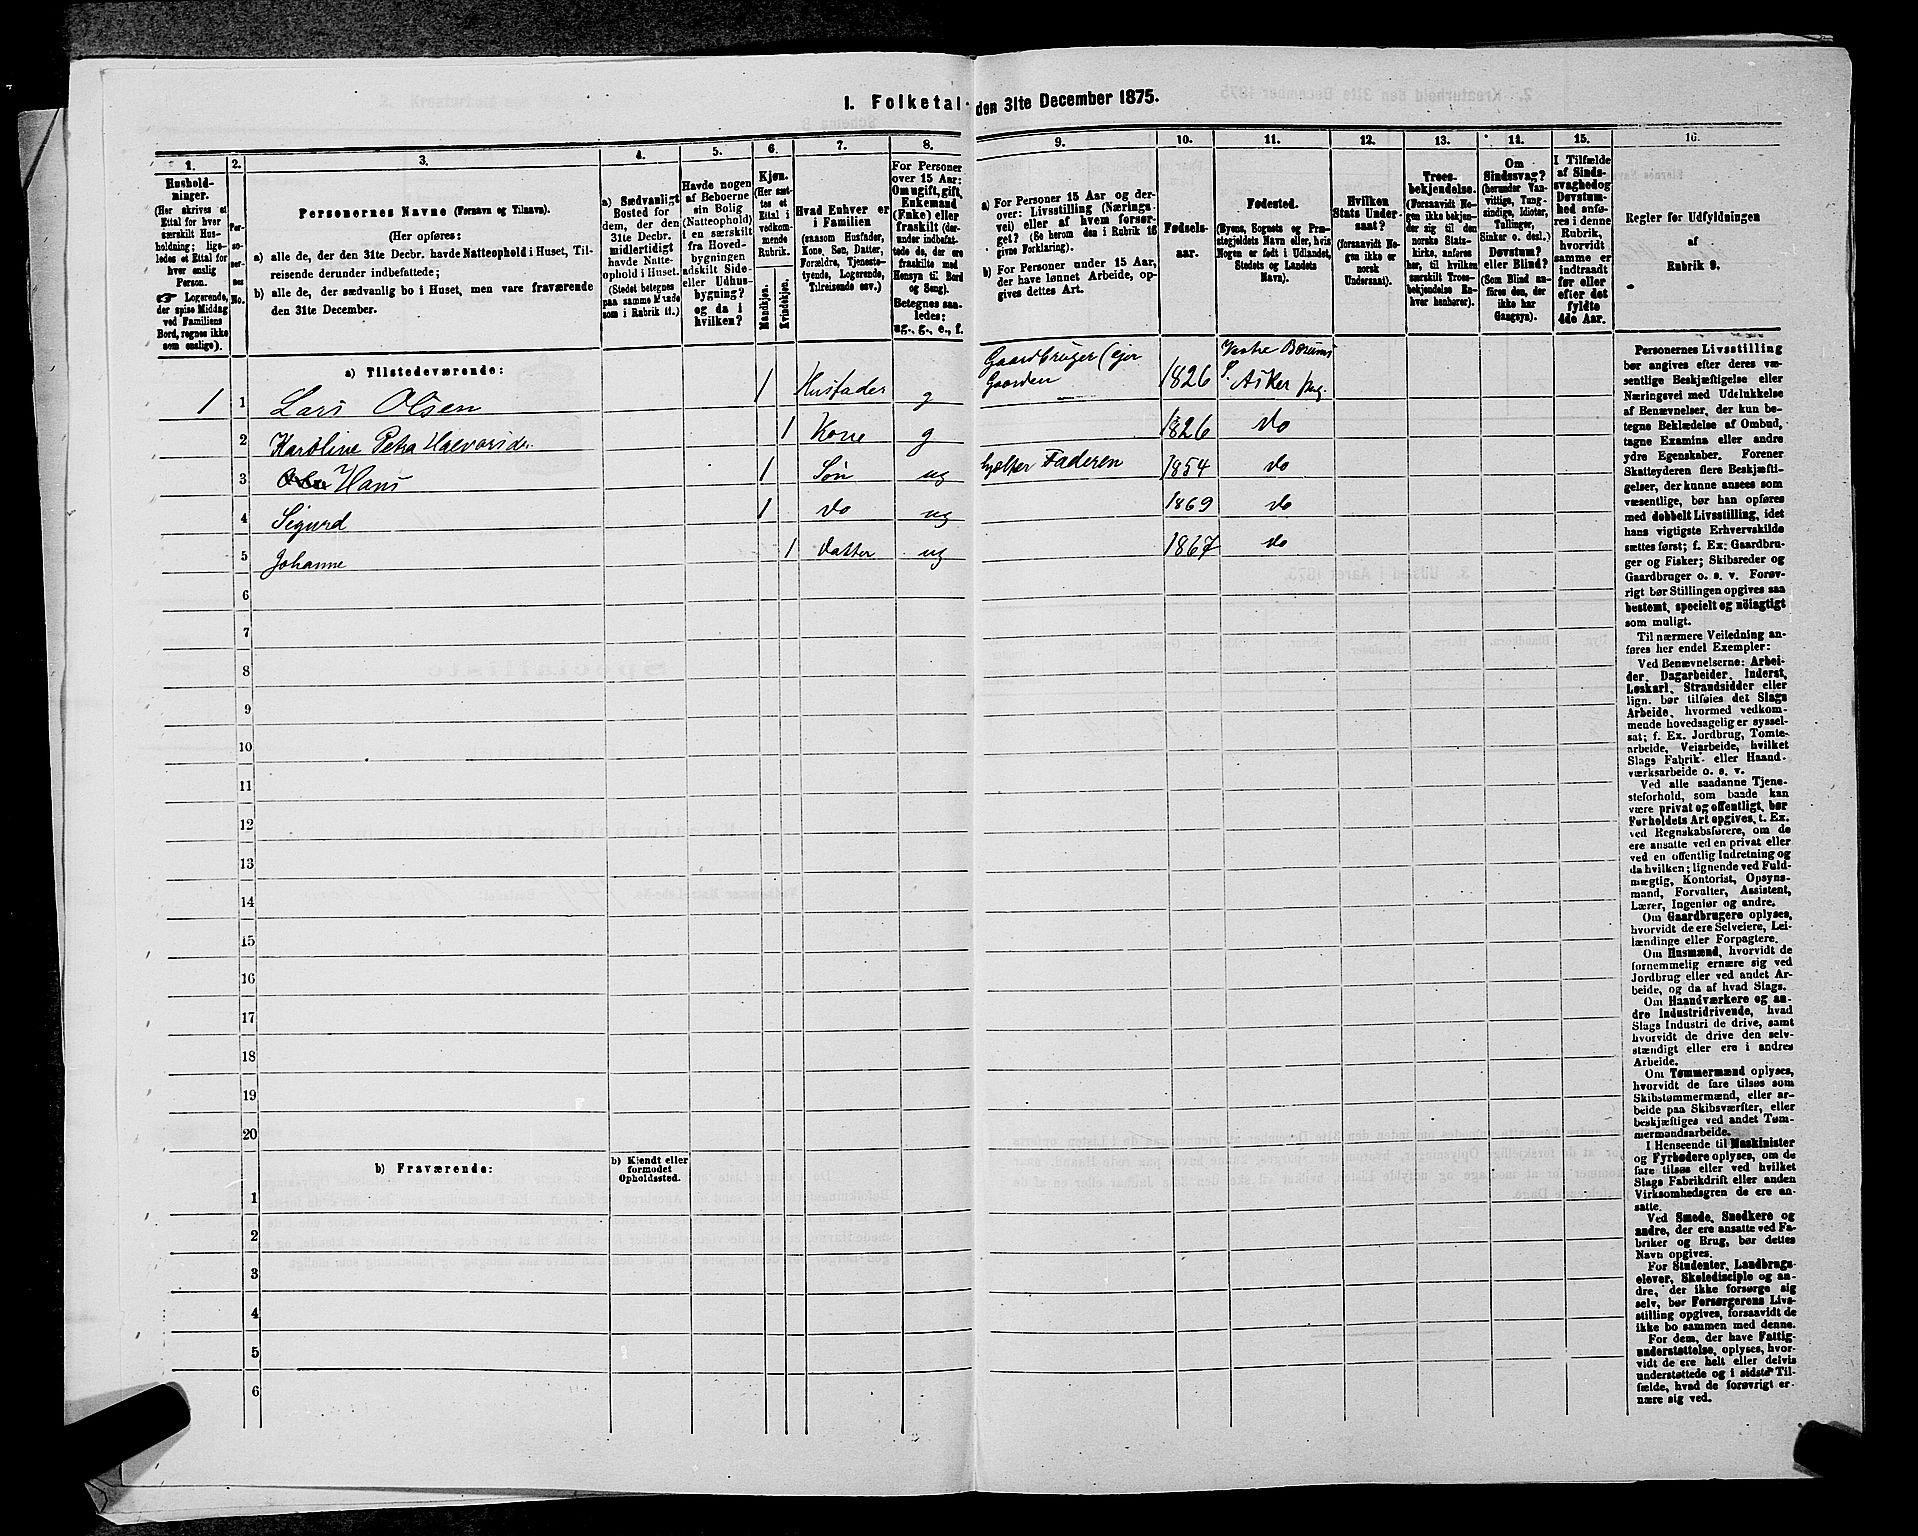 1. Folketal den 31te December 1875.
1.
2.
3.
4.
5.
6.
7.
8.
9.
10.
11.
12.
13.
14.
15.
16.
Hushold-
ninger.
(Her skrives et
Ettal for hver
særskilt Hus-
holdning; lige-
ledes et Ettal for
hver enslig
Person.
☞ Logerende,
der spise Middag
ved Familiens
Bord, regnes ikke
som enslige).
Per-
so-
ner-
nes
No.
Personernes Navne (Fornavn og Tilnavn).
(Her opføres:
a) alle de, der den 31te Decbr. havde Natteophold i Huset, Til-
reisende derunder indbefattede;
b) alle de, der sædvanlig bo i Huset, men vare fraværende
den 31te December.
a) Sædvanligt
Bosted for
dem, der den
31te Decbr.
midlertidigt
havde Natte-
ophold i Huset.
(Stedet betegnes
paa samme Maade
som i Rubrik 11.)
Havde nogen
af Beboerne
sin Bolig
(Natteophold)
i en særskilt
fra Hoved-
bygningen
adskilt Side-
eller Udhus-
bygning?
og da i
hvilken?
Kjøn.
(Her sæt-
tes et
Ettal i
vedkom-
mende
Rubrik.)
Mandkjøn.
Kvindekjøn.
Hvad Enhver er
i Familien
(saasom Husfader,
Kone, Søn, Datter,
Forældre, Tjeneste-
tyende, Logerende,
Tilreisende osv.)
For Personer
over 15 Aar:
Om ugift, gift,
Enkemand
(Enke) eller
fraskilt (der-
under indbefat-
tede de, der ere
fraskilte med
Hensyn til Bord
og Seng).
Betegnes saa-
ledes:
ug., g., e., f.
a) For Personer 15 Aar og der-
over: Livsstilling (Nærings-
vei) eller af hvem forsør-
get? (Se herom den i Rubrik 16
givne Forklaring).
b) For Personer under 15 Aar,
der have lønnet Arbeide, op-
gives dettes Art.
Fødsels-
aar.
Fødested.
(Byens, Sognets og Præ-
stegjeldets Navn eller, hvis
Nogen er født i Udlandet,
Stedets og Landets
Navn).
Hvilken
Stats Under-
saat?
(forsaavidt No-
gen ikke er
norsk
Undersaat).
Troes-
bekjendelse.
(Forsaavidt No-
gen ikke bekjen-
der sig til den
norske Stats-
kirke, anføres
her, til hvilken
særskilt Troes-
bekjendelse En-
hver henhører).
Om
Sindssvag?
(herunder Van-
vittige, Tung-
sindige, Idioter,
Tullinger,
Sinker o. desl.)
Døvstum?
eller Blind?
(Som Blind an-
føres den, der
ikke har
Gangsyn).
I Tilfælde
af Sinds-
svaghed og
Døvstum-
hed anfø-
res i denne
Rubrik,
hvorvidt
samme er
indtraadt
før eller
efter det
fyldte
4de Aar.
Regler for Udfyldningen
af
Rubrik 9.
a) Tilstedeværende:
1 1 Lars Olsen 1 Husfader g Gaardbruger (ejer Gaarden 1826 Vestre Bærums S. Asker pg.
2 Karoline Petra Halvorsdr. 1 Kone g 1826 do
3 Hans 1 Søn ug hjelper Faderen 1854 do
4 Sigurd 1 do ug 1869 do
5 Johanne 1 datter ug 1867 do
6
7
8
9
10
11
12
13
14
15
16
17
18
19
20
b) Fraværende:
b) Kjendt eller
formodet
Opholdssted.
1
2
3
4
5
6
Personernes Livsstilling
bør angives efter deres væ-
sentlige Beskjæftigelse eller
Næringsvei med Udelukkelse
af Benævnelser, der kun be-
tegne Beklædelse af Ombud,
tagne Examina eller andre
ydre Egenskaber. Forener
Skatteyderen flere Beskjæfti-
gelser, der kunne ansees som
væsentlige, bør han opføres
med dobbelt Livsstilling, idet
hans vigtigste Erhvervskilde
sættes først; f. Ex: Gaardbru-
ger og Fisker; Skibsreder og
Gaardbruger o. s. v. Forøv-
rigt bør Stillingen opgives saa
bestemt, specielt og nöiagtigt
som muligt.
Til nærmere Veiledning an-
føres her endel Exempler:
Ved Benævnelserne: Arbei-
der, Dagarbeider, Inderst,
Løskarl, Strandsidder eller
lign. bør tilføies det Slags
Arbeide, hvormed vedkom-
mende hovedsagelig er syssel-
sat; f. Ex. Jordbrug, Tomte-
arbeide, Veiarbeide, hvilket
Slags Fabrik- eller Haand-
værksarbeide o. s. v.
Ved alle saadanne Tjene-
steforhold, som baade kan
være privat og offentligt, bør
Forholdets Art opgives, t. Ex.
ved Regnskabsførere, om de
ere ansatte ved en privat eller
ved en offentlig Indretning og
da hvilken; lignende ved Fuld-
mægtig, Kontorist, Opsyns-
mand, Forvalter, Assistent,
Lærer, Ingeniør og andre.
Om Gaardbrugere oplyses,
hvorvidt de ere Selveiere, Lei-
lændinge eller Forpagtere.
Om Husmænd, hvorvidt de
fornemmelig ernære sig ved
Jordbrug eller ved andet Ar-
beide, og da af hvad Slags.
Om Haandværkere og an-
dre Industridrivende, hvad
Slags Industri de drive, samt
hvorvidt de drive den selv-
stændigt eller ere i andres
Arbeide.
Om Tømmermænd oplyses,
hvorvidt de fare tilsøs som
Skibstømmermænd, eller ar-
beide paa Skibsværfter, eller
beskjæftiges ved andet Tøm-
mermandsarbeide.
I Henseende til Maskinister
og Fyrbødere oplyses, om de
fare tilsøs eller ved hvilket
Slags Fabrikdrift eller anden
Virksomhedsgren de ere an-
satte.
Ved Smede, Snedkere og
andre, der ere ansatte ved Fa-
briker og Brug, bør dettes
Navn opgives.
For Studenter, Landbrugs-
elever, Skoledisciple og an-
dre, der ikke forsørge sig
selv, bør Forsørgerens Livs-
stilling opgives, forsaavidt de
ikke bo sammen med denne.
For dem, der have Fattig-
understøttelse, oplyses, hvor-
vidt de ere helt eller delvis
understøttede og i sidste Til-
fælde, hvad de forøvrigt er-
nære sig ved.